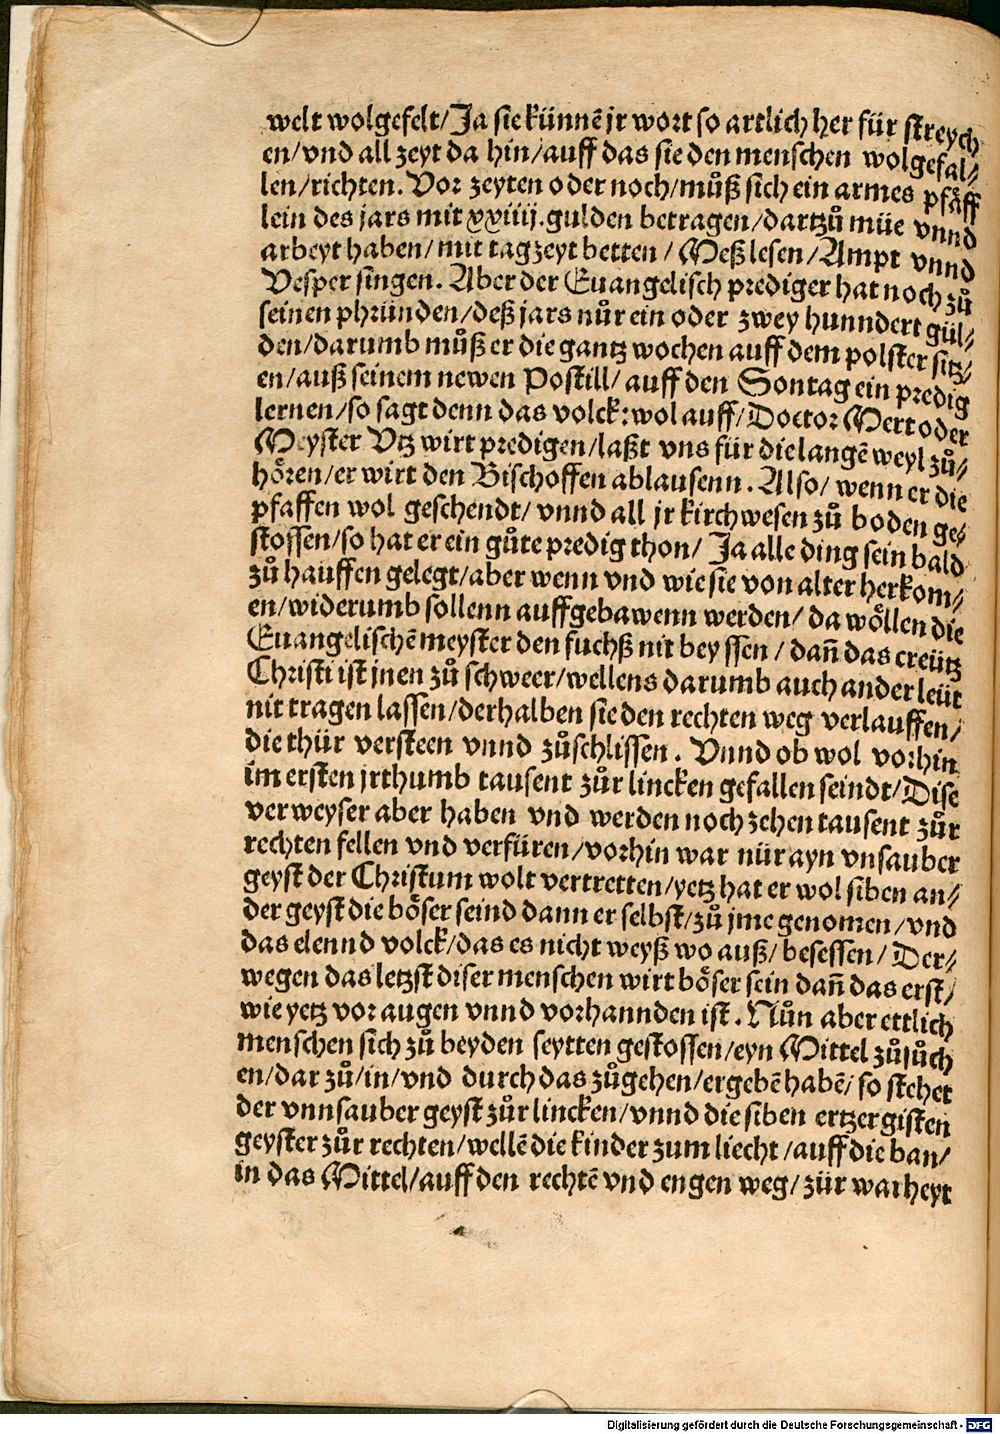 welt wolgefelt/Ja sie künnē jr wort so artlich her für streych
en/vnd all zeyt da hin/auff das sie den menschen wolgefal-/
len/richten. Vor zeyten oder noch/můß sich ein armes pfäff
lein des jars mit xxiiij. gulden betragen/dartzů müe vnnd
arbeyt haben/mit tagzeyt betten/Meß lesen/Ampt vnnd
Vesper singen. Aber der Euangelisch prediger hat noch zů
seinen phründen/deß jars nůr ein oder zwey hunndert gül-/
den/darumb můß er die gantz wochen auff dem polster sitz-/
en/auß seinem newen Postill/auff den Sontag ein predig
lernen/so sagt denn das volck:wol auff/Doctor Mert oder
Meyster Vtz wirt predigen/laßt vns für die langē weyl zů-/
hören/er wirt den Bischoffen ablausenn. Also/wenn er die
pfaffen wol geschendt/vnnd all jr kirchwesen zů boden ge-/
stossen/so hat er ein gůte predig thon/Ja alle ding sein bald
zů hauffen gelegt/aber wenn vnd wie sie von alter herkom-/
en/widerumb sollenn auffgebawenn werden/da wöllen die
Euangelischē meyster den fuchß nit beyssen/dañ das creütz
Christi ist jnen zů schweer/wellens darumb auch ander leüt
nit tragen lassen/derhalben sie den rechten weg verlauffen/
die thür versteen vnnd zůschlissen. Vnnd ob wol vorhin
im ersten jrthumb tausent zůr lincken gefallen seindt/Dise
verweyser aber haben vnd werden noch zehen tausent zůr
rechten fellen vnd verfüren/vorhin war nür ayn vnsauber
geyst der Christum wolt vertretten/yetz hat er wol siben an-/
der geyst die böser seind dann er selbst/zů jme genomen/vnd
das elennd volck/das es nicht weyß wo auß/besessen/Der-/
wegen das letzst diser menschen wirt böser sein dañ das erst/
wie yetz vor augen vnnd vorhannden ist. Nůn aber ettlich
menschen sich zů beyden seytten gestossen/eyn Mittel zůsůch
en/dar zů/in/vnd durch das zůgehen/ergebē habē/so stehet
der vnnsauber geyst zůr lincken/vnnd die siben ertzergisten
geyster zůr rechten/wellē die kinder zum liecht/auff die ban/
in das Mittel/auff den rechtē vnd engen weg/zür warheyt
Digitalisierung gefördert durch die Deutsche Forschungsgemeinschaft - DFG